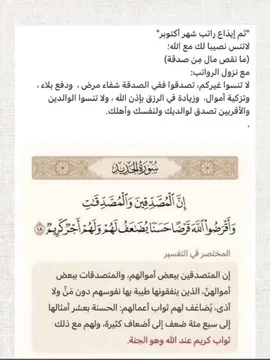 "تم إيداع راتب شهر أكتوبر"
لاتنس نصيبا لك مع الله؛
(ما نقص مال من صدقة)
مع نزول الرواتب:
لا تنسوا غيركم، تصدقوا ففي الصدقة شفاء مرض ، ودفع بلاء ،
وتزكية أموال، وزيادة في الرزق بإذن الله ، ولا تنسوا الوالدين
والأقربين تصدق لوالديك ولنفسك وأهلك.
.
سُورَةُ الحَدِيدِ
إِنَّ ٱلْمُصَّدِّقِينَ وَٱلْمُصَّدِّقَـٰتِ
وَأَقْرَضُوا۟ ٱللَّهَ قَرْضًا حَسَنًا يُضَـٰعَفُ لَهُمْ وَلَهُمْ أَجْرٌ كَرِيمٌ ١٨
المختصر في التفسير
إن المتصدقين ببعض أموالهم، والمتصدقات ببعض
أموالهنّ، الذين ينفقونها طيبة بها نفوسهم دون مَنٍّ ولا
أذى، يُضَاعَف لهم ثواب أعمالهم: الحسنة بعشر أمثالها
إلى سبع مئة ضعف إلى أضعاف كثيرة، ولهم مع ذلك
ثواب كريم عند الله وهو الجنة.